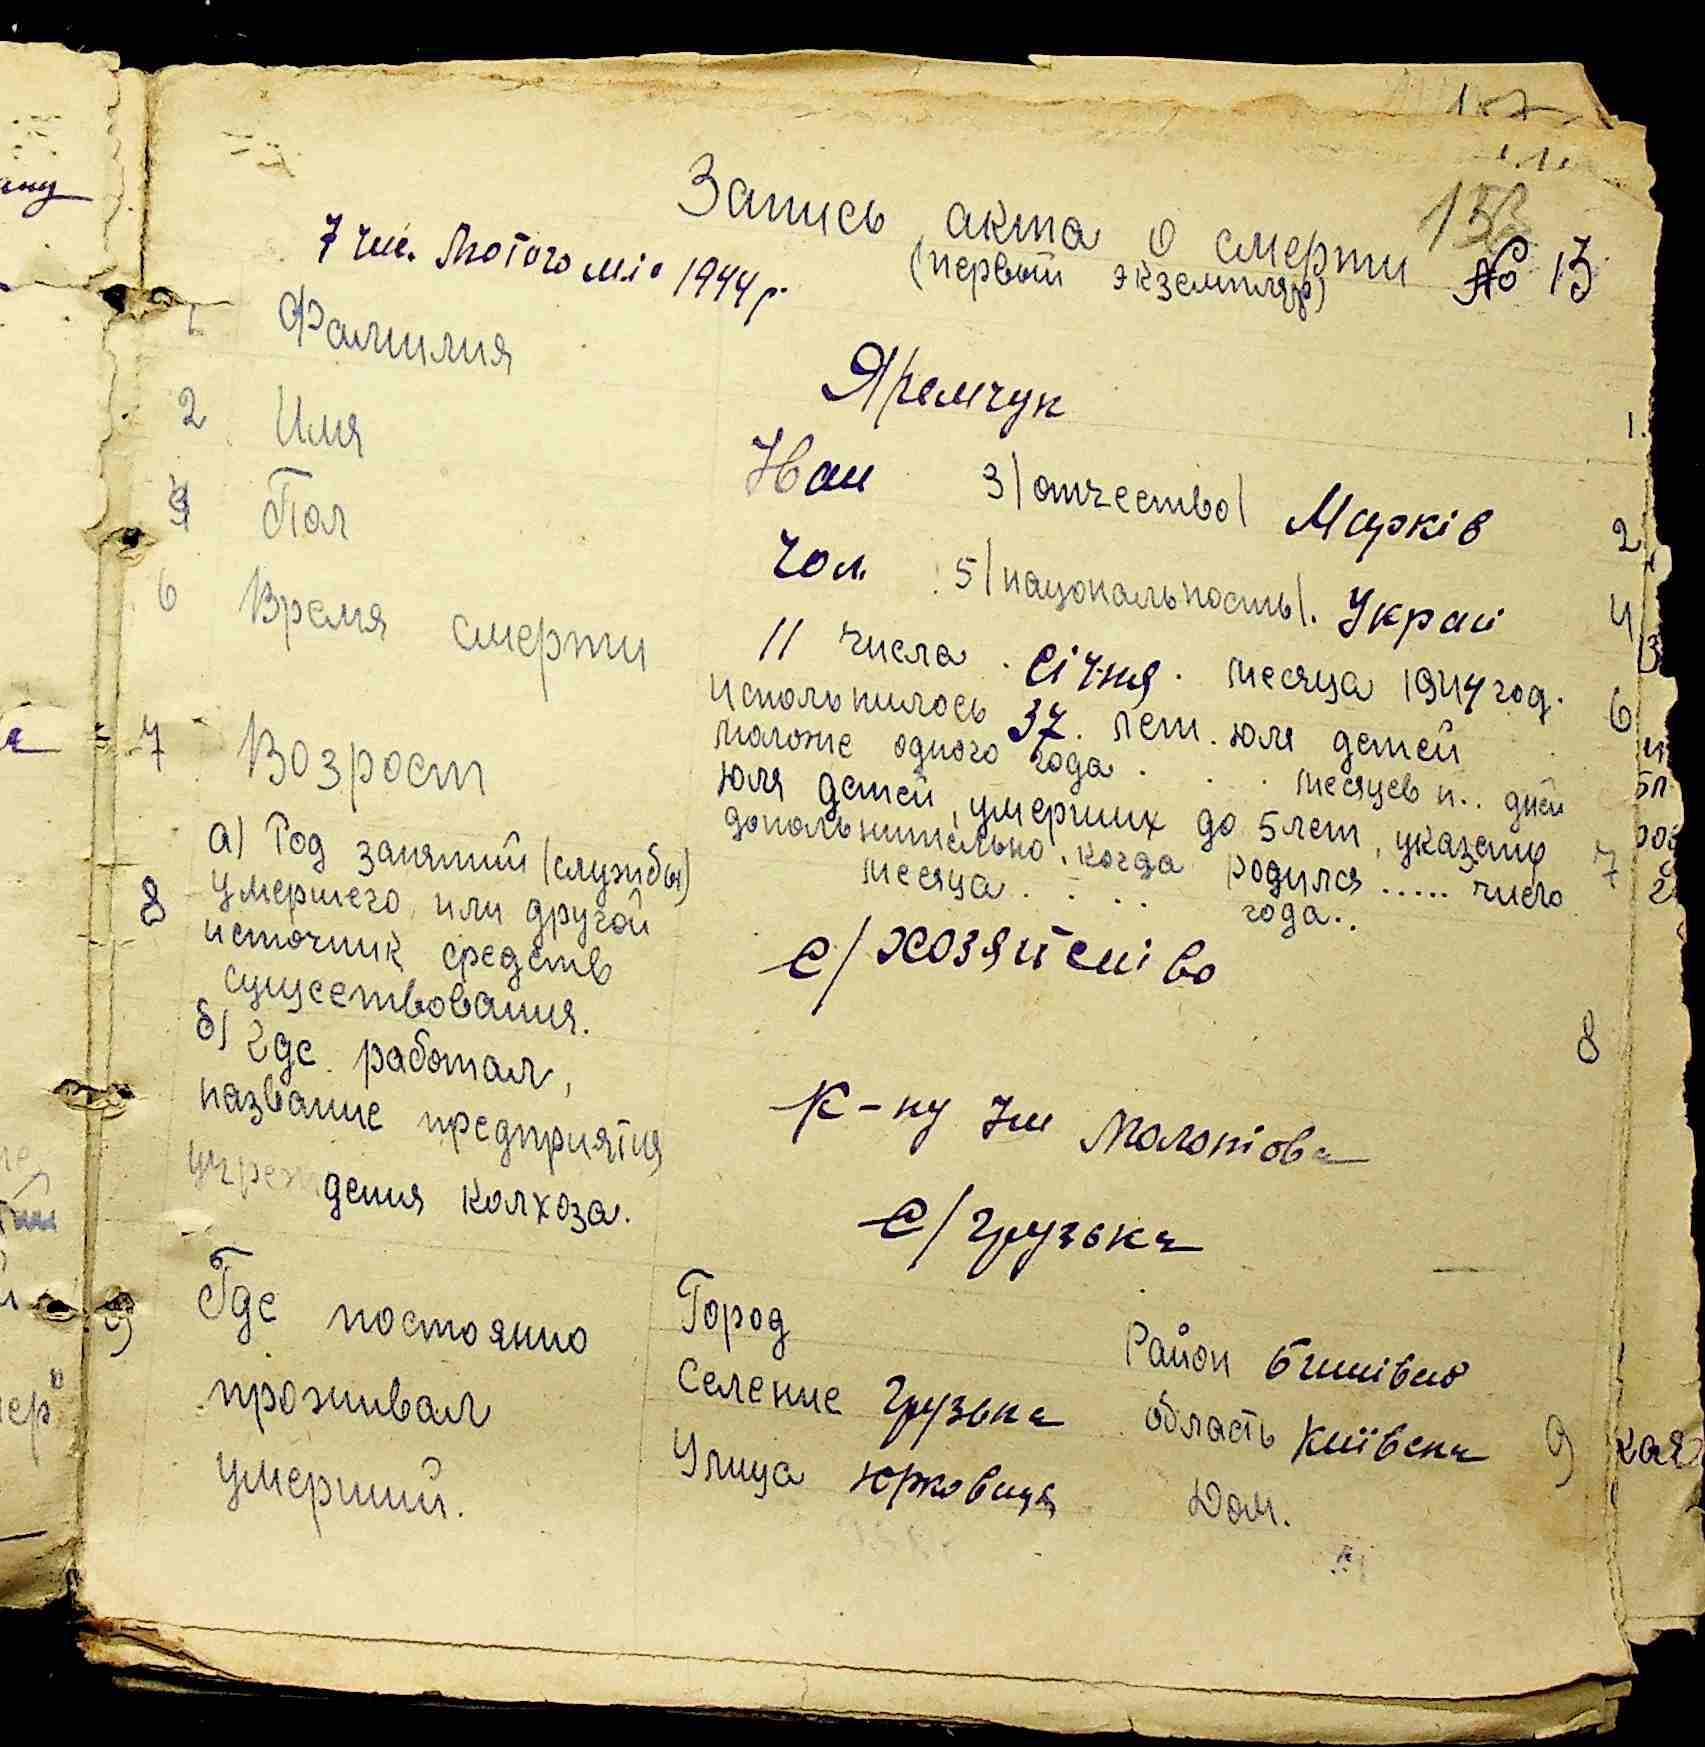 153
Запись акта о смерти № 13
(первый экземпляр)
7 чис. Лютого міс 1944 р.
1 Фамилия Яремчук
2 Имя Иван 3/отчество/ Марків
4 Пол Чол. 5/нацональность/. Украй
6 Время смерти 11 числа січня. месяца 1944 год.
7 Возрост
исполонилось 37. лет. юля детей
моложе одного года . . . месяцев и.. дней
юля детей, умерших до 5 лет, указать
дополонительно, когда родился ..... число
месяца . . .. года..
8 а) Род занятий (службы)
умершего, или другой
источник средств
существования.
с/хозяйство
б) где работал,
название предприятия
учреждения колхоза.
К-пу Им Молотова
с/Грузька
9 Где постоянно
проживал
умерший.
Город Район Бишівс
Селение Грузька область Київска
Улица Юрковиця Дом.